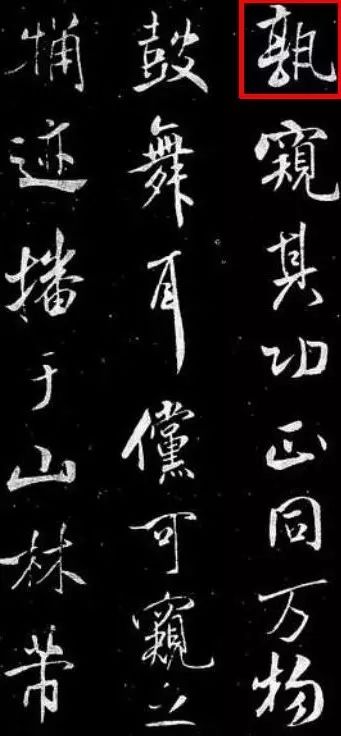 孰窺其功正同万物
鼓舞耳儻可窺之
迹播于山林带